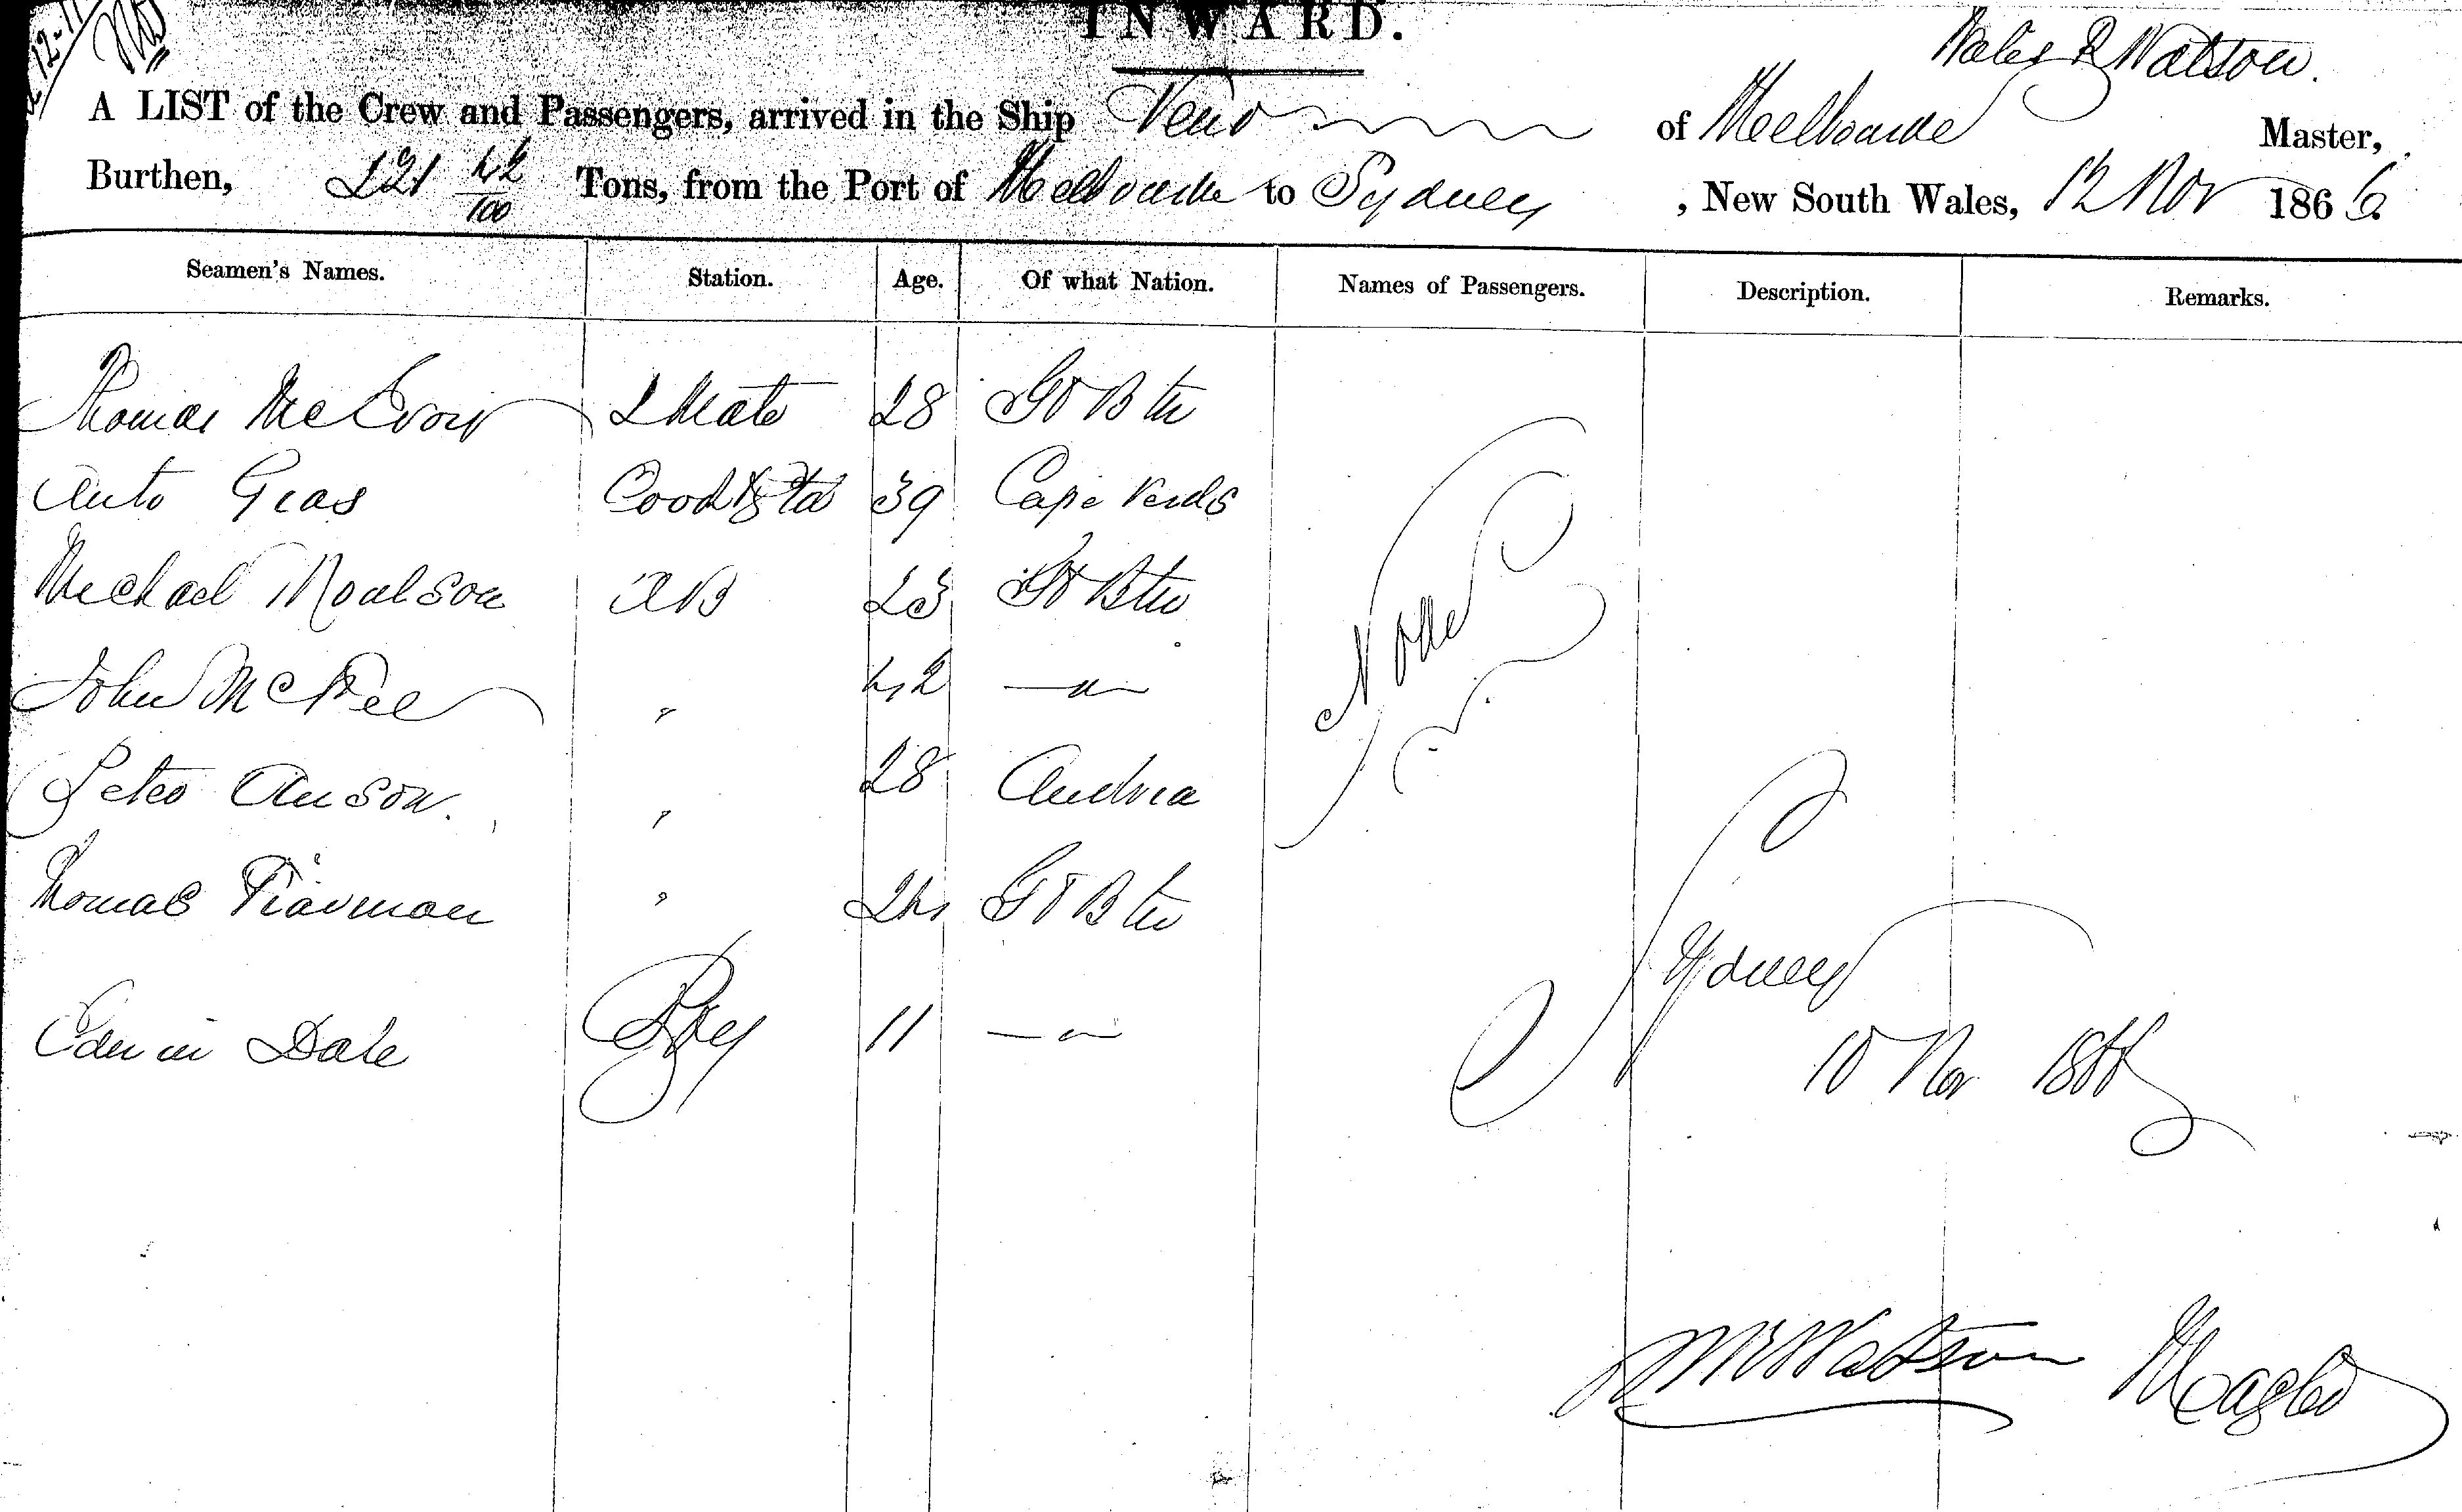 12-11
INWARD.
Walter R Watson.
A LIST of the Crew and Passengers, arrived in the Ship Veno of Melbourne Master,
Burthen, 221 42/100 Tons, from the Port of Melbourne to Sydney, New South Wales, 12 Nov 1866
Seamen's Names. Station. Age. Of what Nation. Names of Passengers. Description. Remarks.
Thomas McEvoy 2 Mate 28 Gt Btn
Anto Gras Cook & Std 39 Cape Verds
Michael Moulson AB 23 Gt Btn
John McKee " 42 —"—
Peter Anson. " 28 Austria
Thomas " 24 Gt Btn
Edwin Dale Boy 11 —"—
None
Sydney
10 Nov 1866
WRWatson Master